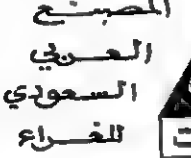 المصنع
العربي
السعودي
للغراء